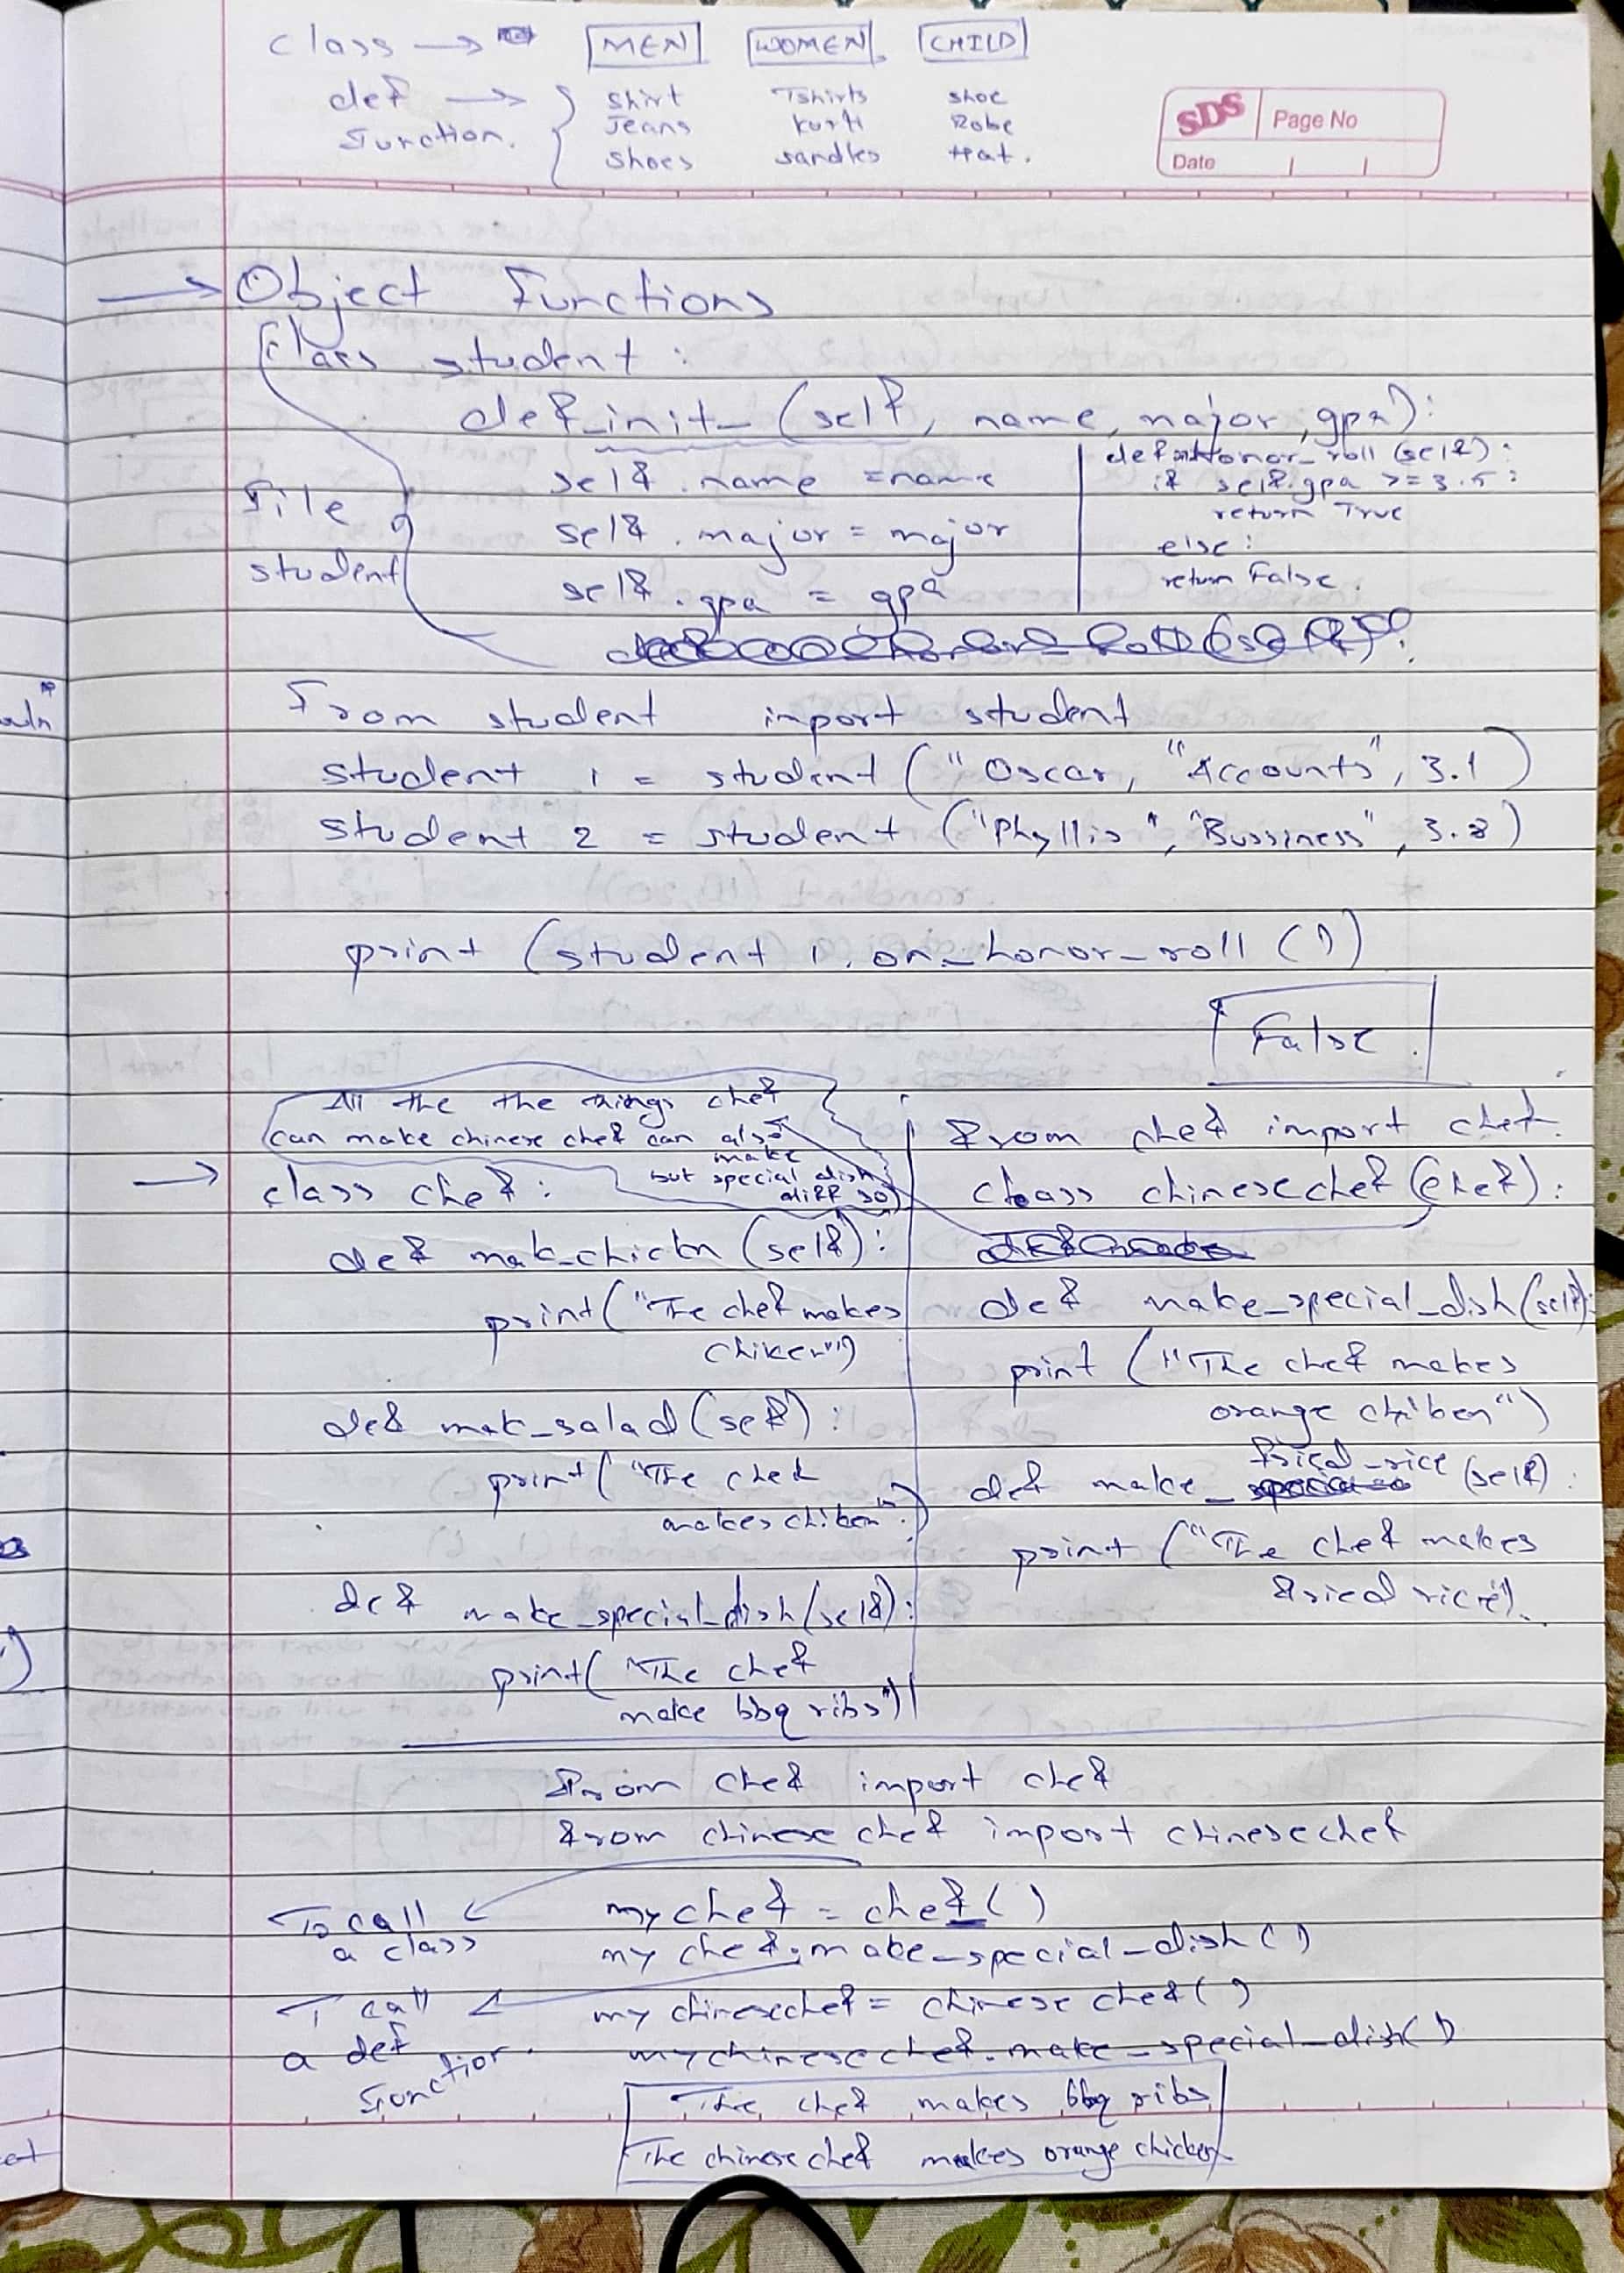 class →   MEN   WOMEN   CHILD
def → { shirt   Tshirts   shoe
Function. Jeans   kurti   Robe
shoes   sandles   Hat.
SDS Page No
Date
→ Object Functions
Class student :
def_init_ (self, name, major, gpa):
self.name = name
self.major = major
self.gpa = gpa
File
student
Honor_roll (self):
if self.gpa >= 3.5 :
return True
else :
return False.
From student import student
student 1 = student ("Oscar, "Accounts", 3.1)
student 2 = student ("Phyllis", "Bussiness", 3.8)
print (student 1. on_honor_roll ())
False.
All the the things chef
can make chinese chef can also
make
but special dish
diff so
→ class chef :
def mak_chickn (self):
print ("The chef makes
chiken")
def mak_salad (self):
print ("The chef
makes chiken".)
def make_special_dish (self):
print( "The chef
make bbq ribs")
from chef import chef.
class chinesechef (chef):
def make_special_dish (self):
print ("The chef makes
orange chiken")
def make_fried_rice (self):
print ("The chef makes
fried rice").
from chef import chef
from chinese chef import chinesechef
To call
a class
my chef = chef ()
my chef.make_special_dish ()
T call
a def
Function.
my chinesechef = chinese chef ()
mychinesechef.make_special_dish()
The chef makes bbq ribs
The chinese chef makes orange chicken